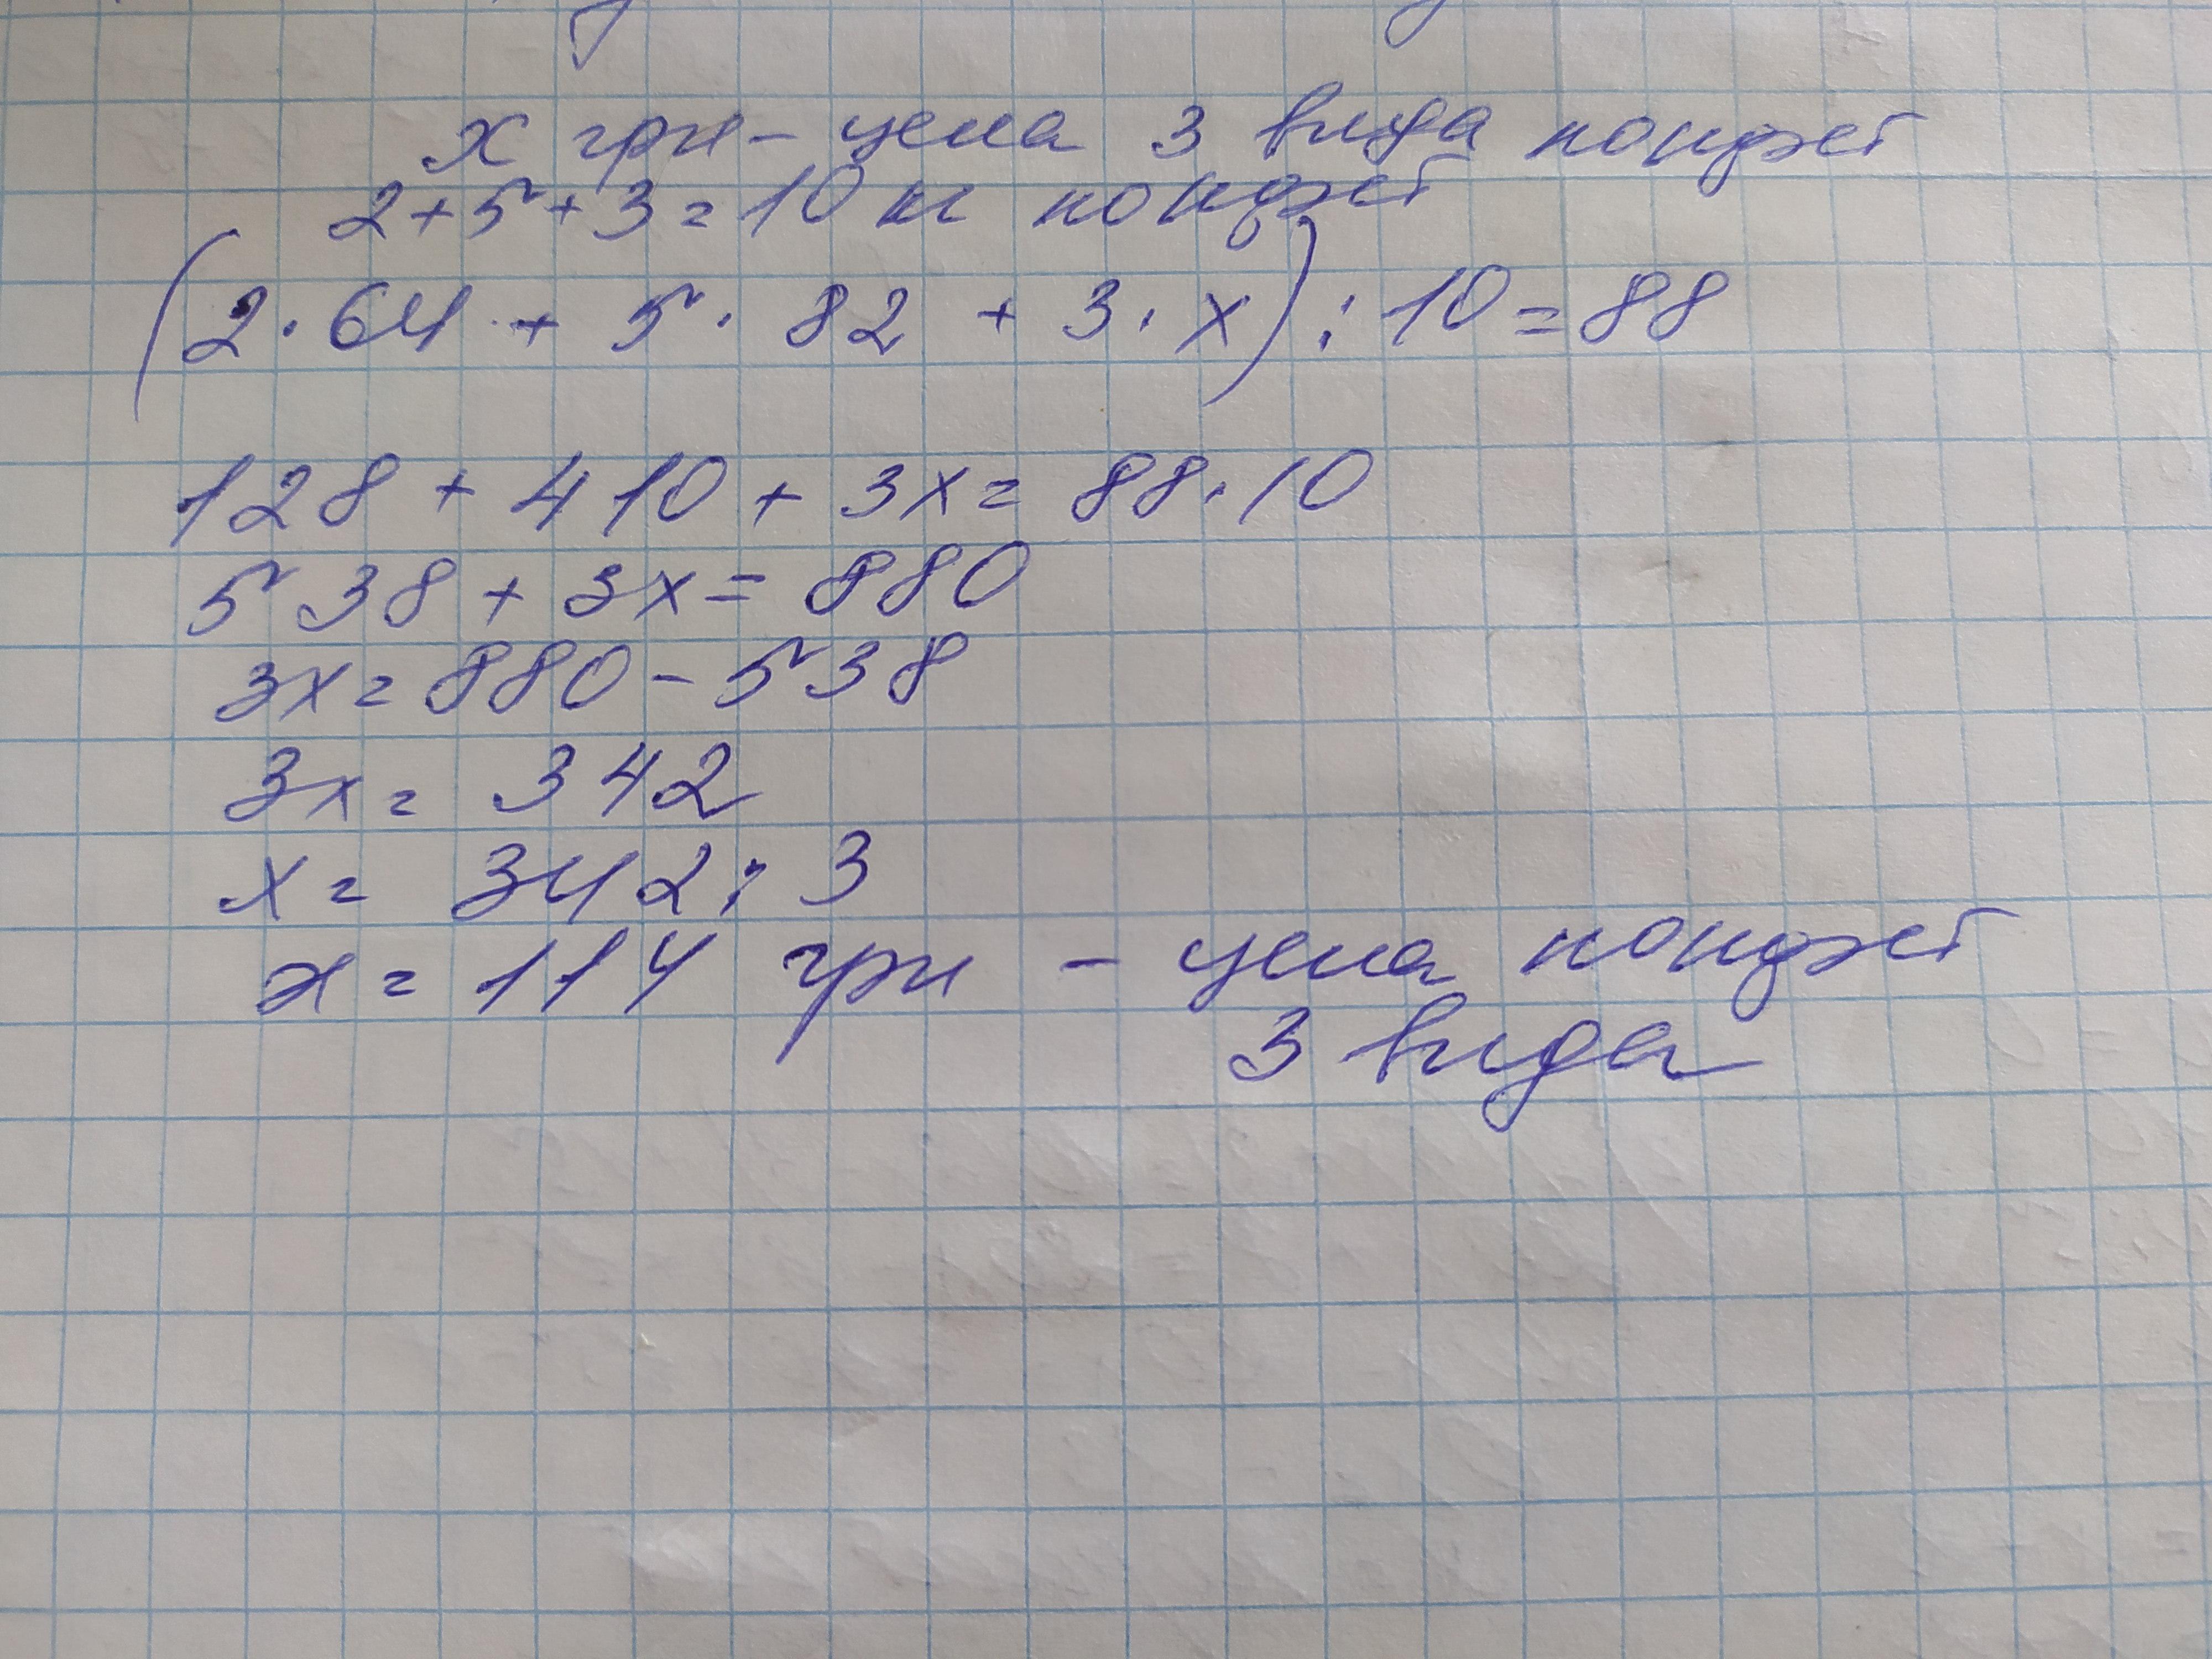 x грн - цена 3 вида конфет
2+5+3=10 кг конфет
(2·64 + 5·82 + 3·x):10=88
128+410+3x=88·10
538+3x=880
3x=880-538
3x=342
x=342:3
x=114 грн - цена конфет
3 вида